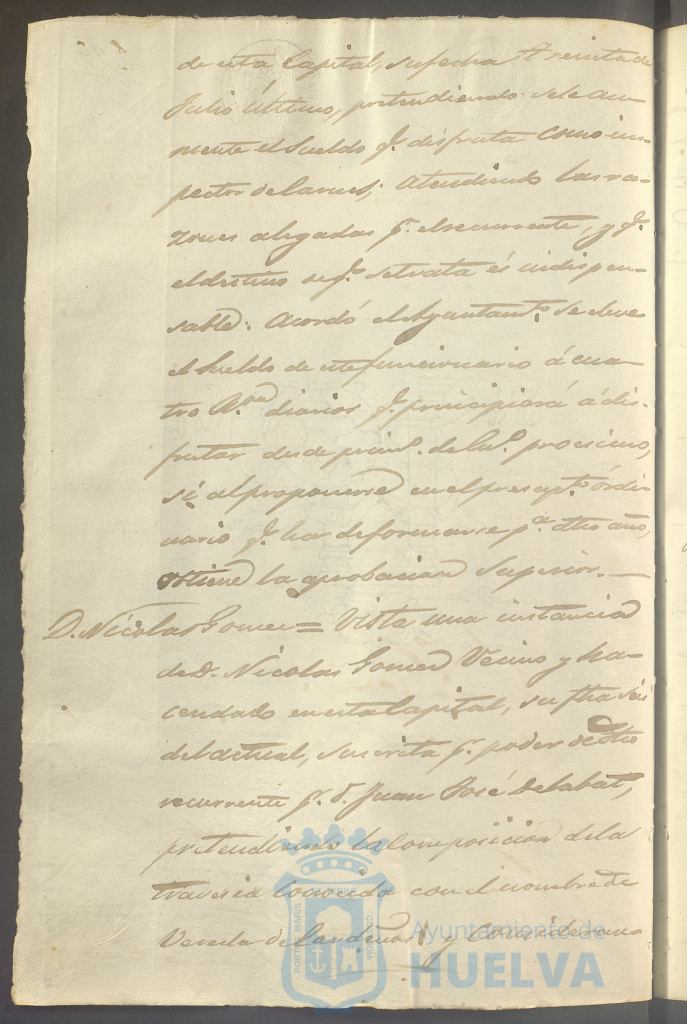 de esta Capital, su fecha treinta de
Julio último, pretendiendo se le au-
mente el sueldo q.e disfruta como ins-
pector de carnes; Atendiendo las ra-
zones alegadas p.r el recurrente, y q.e
el destino de q.e se trata és indispen-
sable: Acordó el Ayuntam.to Se eleve
el sueldo de este funcionario á cua-
tro R.s diarios q.e principiará á dis-
frutar desde prim.o de En.o procsimo,
si al proponerse en el presup.to órdi-
nario q.e ha de formarse p.a dho año,
obtiene la aprobacion Superior.—
D. Nicolas Gomez = Vista una instancia
de D. Nicolas Gomez Vecino y ha-
cendado en esta Capital, su fha seis
del actual, suscrita p.r poder de dho
recurrente p.r D. Juan José Delabat,
pretendiendo la composicion de la
travesia conocida con el nombre de
Vereda de y Consideran-
PORTUS MARIS ET TERRE CUSTODIA
Ayuntamiento de
HUELVA